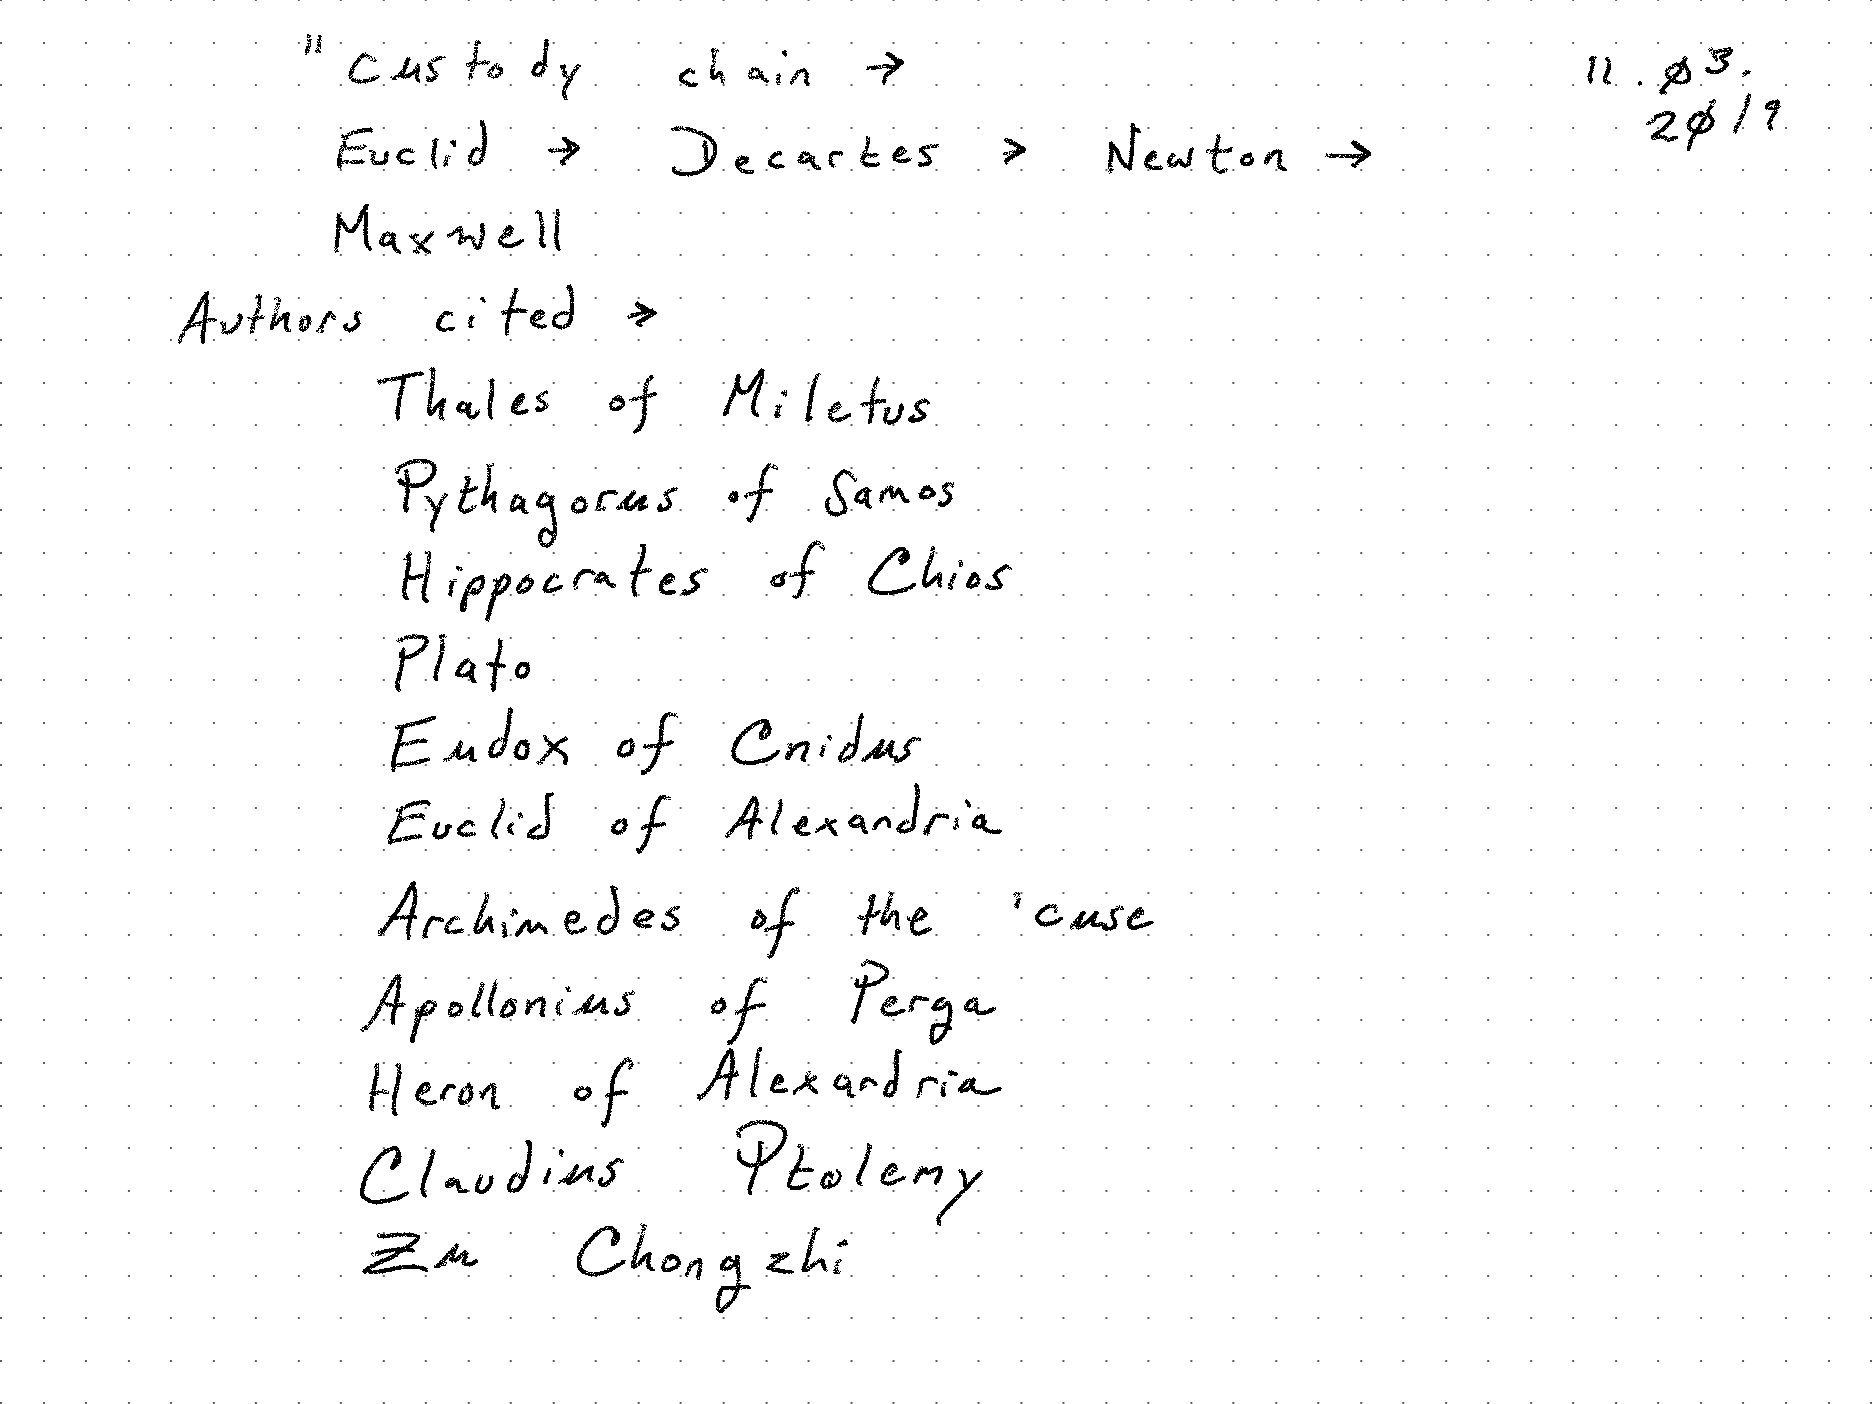 "Custody chain →
11.ø3.
2ø19
Euclid → Decartes > Newton →
Maxwell
Authors cited →
Thales of Miletus
Pythagorus of Samos
Hippocrates of Chios
Plato
Eudox of Cnidus
Euclid of Alexandria
Archimedes of the 'cuse
Apollonius of Perga
Heron of Alexandria
Claudius Ptolemy
Zu Chongzhi